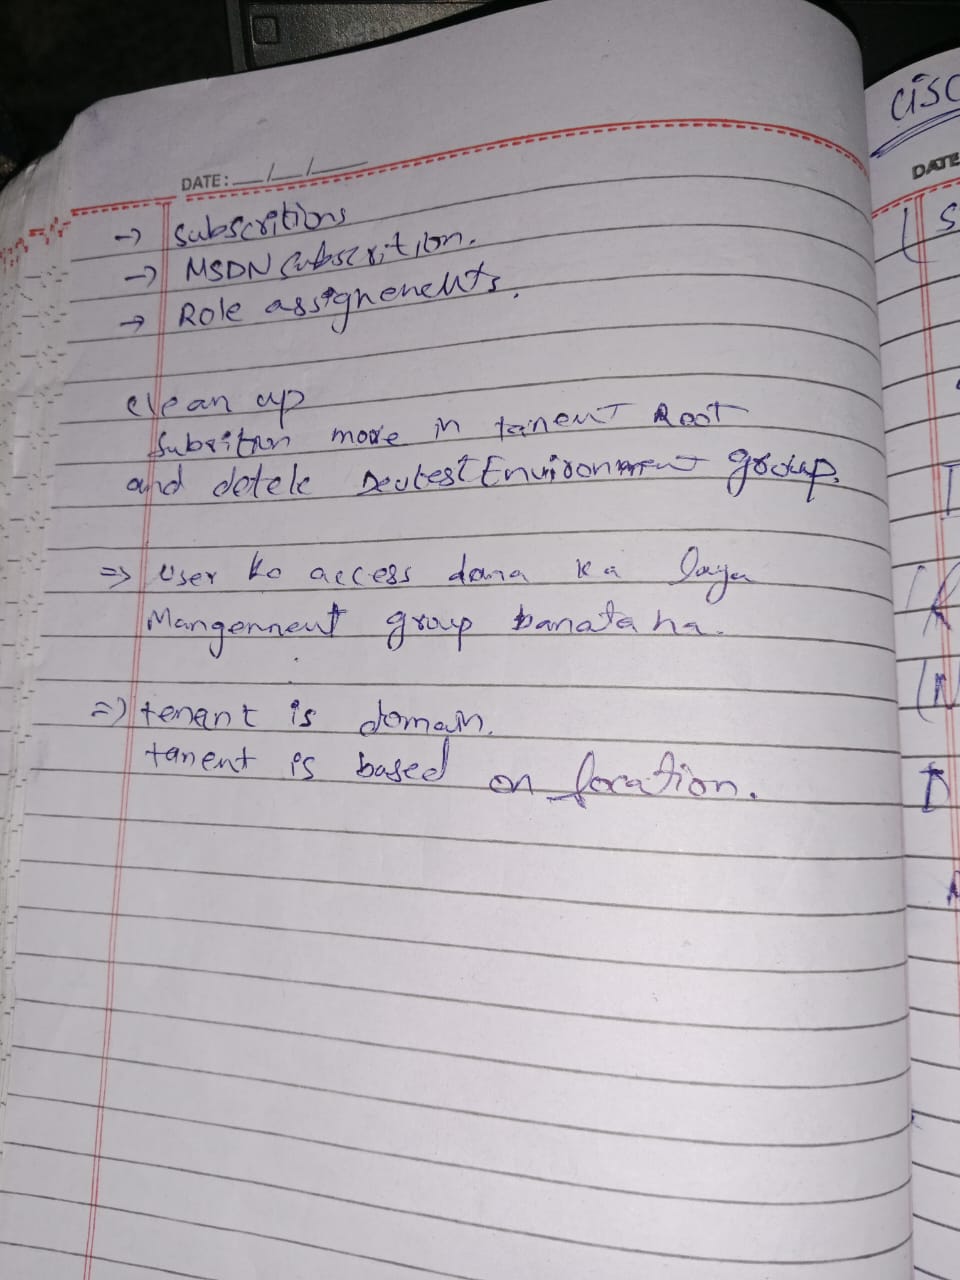 DATE: __/__/__
→ Subscritions
→ MSDN Subscrition.
→ Role assignements.
clean up
Subsition move in tanent Root
and detele DevtestEnvironment group.
⇒ User ko access dana ka laya
Mangement group banata ha.
⇒ tenant is domain.
tanent is based on location.
CISC
DATE